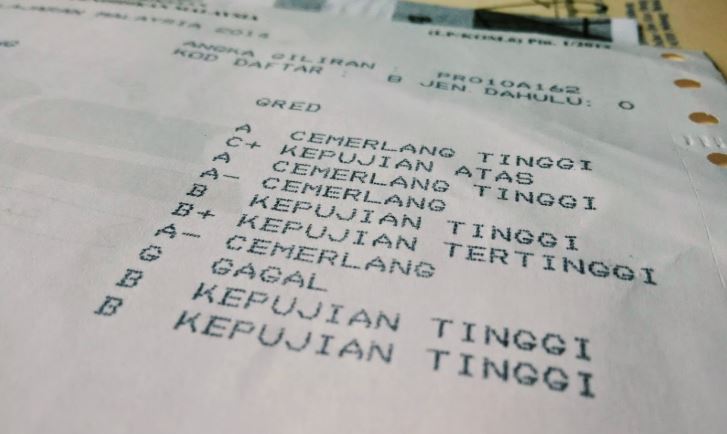 MALAYSIA 2014
(LP-KOM.6) Pin. 1/2012
ANGKA GILIRAN : PR010A162
KOD DAFTAR : B JEN DAHULU: 0
GRED
A CEMERLANG TINGGI
C+ KEPUJIAN ATAS
A CEMERLANG TINGGI
A- CEMERLANG
B KEPUJIAN TINGGI
B+ KEPUJIAN TERTINGGI
A- CEMERLANG
G GAGAL
B KEPUJIAN TINGGI
B KEPUJIAN TINGGI